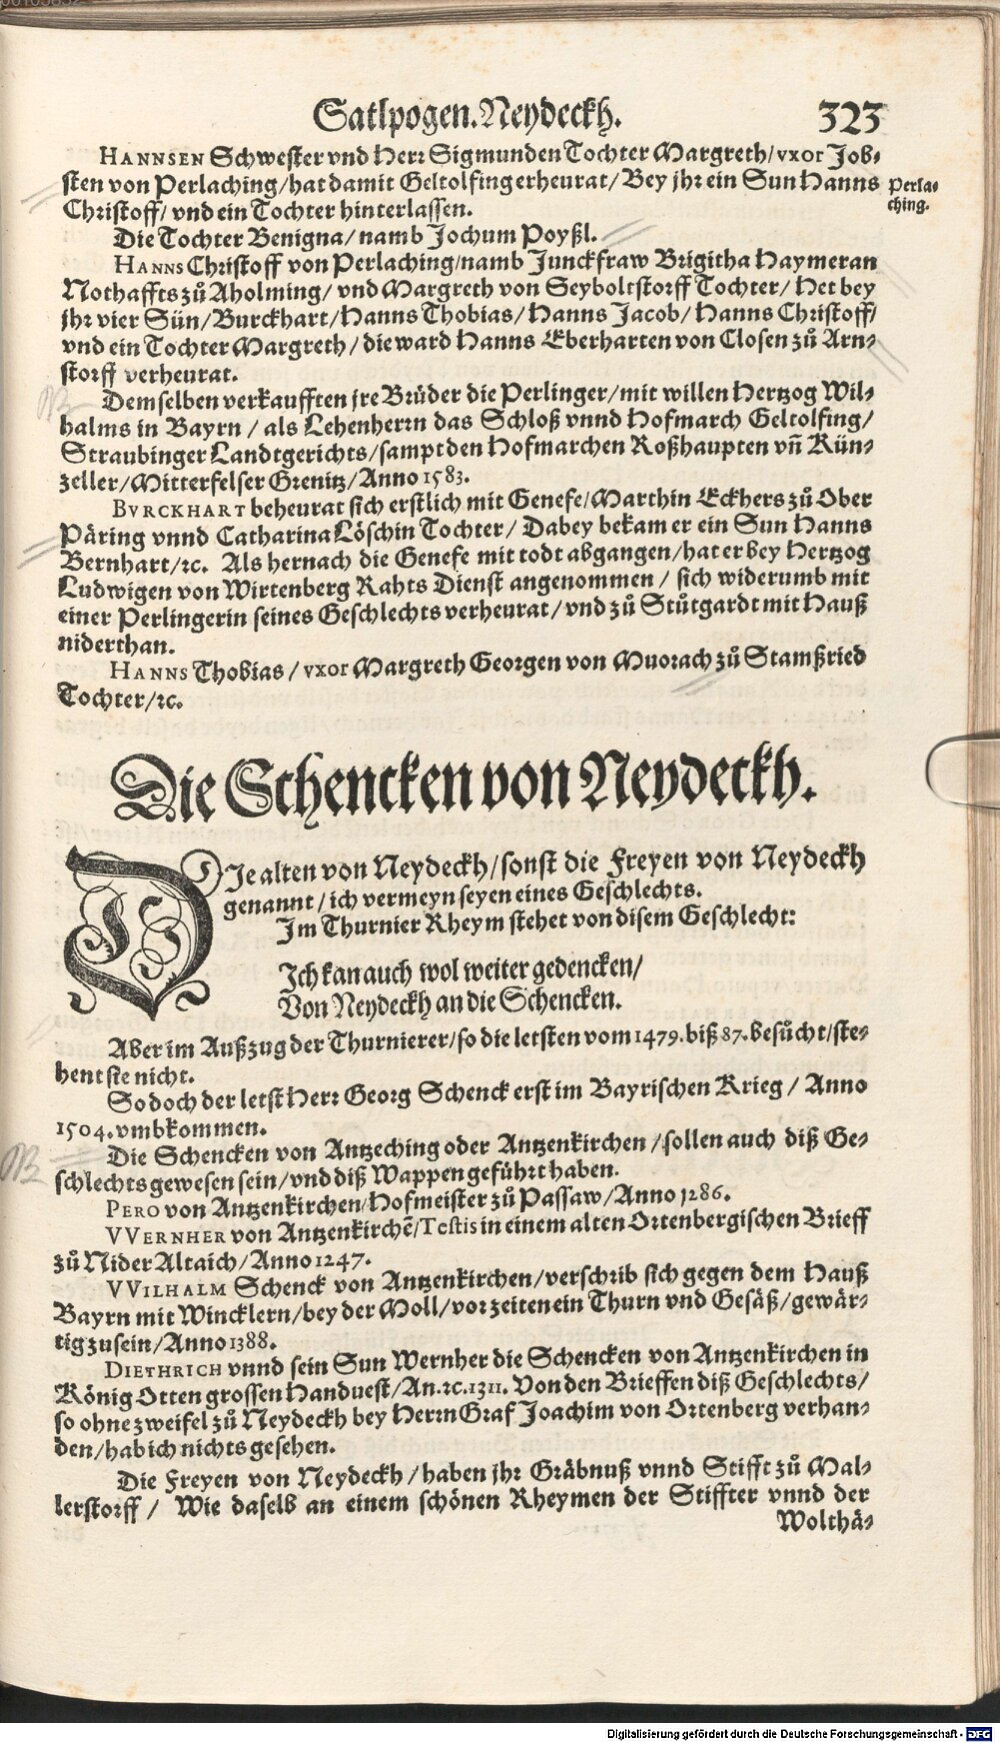 Satlpogen. Neydeckh. 323
HANNSEN Schwester vnd Herr Sigmunden Tochter Margreth/ vxor Job⸗
sten von Perlaching/ hat damit Geltolfing erheurat/ Bey jhr ein Sun Hanns
Christoff/ vnd ein Tochter hinterlassen.
Perla⸗
ching.
Die Tochter Benigna/ namb Jochum Poyßl.
HANNS Christoff von Perlaching/ namb Junckfraw Brigitha Haymeran
Nothaffts zů Aholming/ vnd Margreth von Seyboltstorff Tochter/ Het bey
jhr vier Sün/ Burckhart/ Hanns Thobias/ Hanns Jacob/ Hanns Christoff/
vnd ein Tochter Margreth/ die ward Hanns Eberharten von Closen zů Arn⸗
storff verheurat.
Demselben verkaufften jre Brüder die Perlinger/ mit willen Hertzog Wil⸗
halms in Bayrn/ als Lehenherrn das Schloß vnnd Hofmarch Geltolfing/
Straubinger Landtgerichts/ sampt den Hofmarchen Roßhaupten vñ Kün⸗
zeller/ Mitterfelser Grenitz/ Anno 1583.
BVRCKHART beheurat sich erstlich mit Genefe/ Marthin Eckhers zů Ober
Päring vnnd Catharina Löschin Tochter/ Dabey bekam er ein Sun Hanns
Bernhart/ ꝛc. Als hernach die Genefe mit todt abgangen/ hat er bey Hertzog
Ludwigen von Wirtenberg Rahts Dienst angenommen/ sich widerumb mit
einer Perlingerin seines Geschlechts verheurat/ vnd zů Stůtgardt mit Hauß
niderthan.
HANNS Thobias/ vxor Margreth Georgen von Muorach zů Stamßried
Tochter/ ꝛc.
Die Schencken von Neydeckh.
DIe alten von Neydeckh/ sonst die Freyen von Neydeckh
genannt/ ich vermeyn seyen eines Geschlechts.
Im Thurnier Rheym stehet von disem Geschlecht:
Ich kan auch wol weiter gedencken/
Von Neydeckh an die Schencken.
Aber im Außzug der Thurnierer/ so die letsten vom 1479. biß 87. besůcht/ ste⸗
hent sie nicht.
So doch der letst Herr Georg Schenck erst im Bayrischen Krieg/ Anno
1504. vmbkommen.
Die Schencken von Antzeching oder Antzenkirchen/ sollen auch diß Ge⸗
schlechts gewesen sein/ vnd diß Wappen geführt haben.
PERO von Antzenkirchen/ Hofmeister zů Passaw/ Anno 1286.
VVERNHER von Antzenkirchẽ/ Testis in einem alten Ortenbergischen Brieff
zů Nider Altaich/ Anno 1247.
VVILHALM Schenck von Antzenkirchen/ verschrib sich gegen dem Hauß
Bayrn mit Wincklern/ bey der Moll/ vor zeiten ein Thurn vnd Gesäß/ gewär⸗
tig zu sein/ Anno 1388.
DIETHRICH vnnd sein Sun Wernher die Schencken von Antzenkirchen in
König Otten grossen Handuest/ An. ꝛc. 1311. Von den Brieffen diß Geschlechts/
so ohne zweifel zů Neydeckh bey Herrn Graf Joachim von Ortenberg verhan⸗
den/ hab ich nichts gesehen.
Die Freyen von Neydeckh/ haben jhr Gräbnuß vnnd Stifft zů Mal⸗
lerstorff/ Wie daselb an einem schönen Rheymen der Stiffter vnnd der
Wolthä⸗
Digitalisierung gefördert durch die Deutsche Forschungsgemeinschaft - DFG